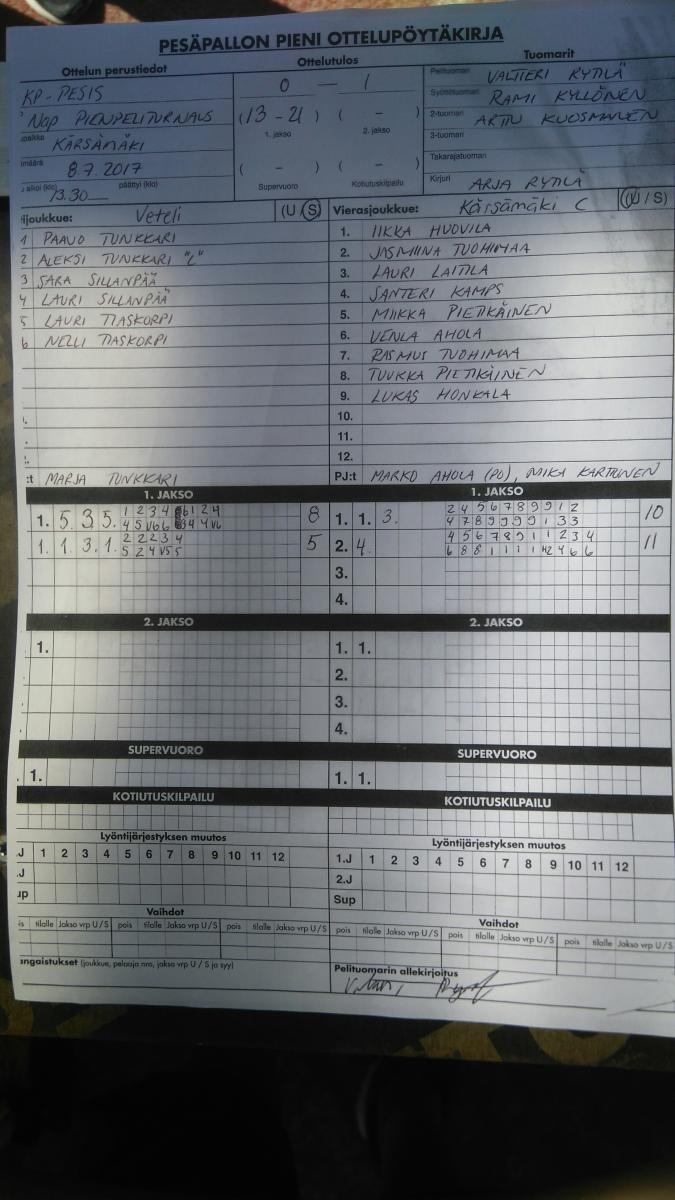 PESÄPALLON PIENI OTTELUPÖYTÄKIRJA
Ottelun perustiedot
Ottelutulos
Tuomarit
KP-PESIS
Nap PIENPELITURNAUS
KÄRSÄMÄKI
8.7.2017
alkoi (klo) 13.30 päättyi (klo)
0 - 1
(13 - 21) ( - )
1. jakso 2. jakso
( - ) ( - )
Supervuoro Kotiutuskilpailu
Pelituomari VALTTERI RYTILÄ
Syöttötuomari RAMI KYLLÖNEN
2-tuomari ARTTU KUOSMANEN
3-tuomari
Takarajatuomari
Kirjuri ARJA RYTILÄ
ijoukkue: Veteli (U / S)
1 PAAVO TUNKKARI
2 ALEKSI TUNKKARI "L"
3 SARA SILLANPÄÄ
4 LAURI SILLANPÄÄ
5 LAURI TIASKORPI
6 NELLI TIASKORPI
:t MARJA TUNKKARI
Vierasjoukkue: Kärsämäki C (U / S)
1. IIKKA HUOVILA
2. JASMIINA TUOHIMAA
3. LAURI LAITILA
4. SANTERI KAMPS
5. MIIKKA PIETIKÄINEN
6. VENLA AHOLA
7. RASMUS TUOHIMAA
8. TUUKKA PIETIKÄINEN
9. LUKAS HONKALA
10.
11.
12.
PJ:t MARKO AHOLA (PO), MIKA KARTTUNEN
1. JAKSO
1. 5. 3. 5. 8
1. 1. 3. 1. 2 2 2 3 4 5
1. JAKSO
1. 1. 3. 2 4 5 6 7 8 9 9 1 2 10
4 7 8 9 9 9 9 1 3 3
2. 4. 4 5 6 7 8 9 1 1 2 3 4 11
3.
4.
2. JAKSO
1.
2. JAKSO
1. 1.
2.
3.
4.
SUPERVUORO
1.
SUPERVUORO
1. 1.
KOTIUTUSKILPAILU
KOTIUTUSKILPAILU
Lyöntijärjestyksen muutos
.J 1 2 3 4 5 6 7 8 9 10 11 12
.J
up
Lyöntijärjestyksen muutos
1.J 1 2 3 4 5 6 7 8 9 10 11 12
2.J
Sup
Vaihdot
is tilalle Jakso vrp U/S pois tilalle Jakso vrp U/S pois tilalle Jakso vrp U/S
Vaihdot
pois tilalle Jakso vrp U/S pois tilalle Jakso vrp U/S pois tilalle Jakso vrp U/S
angaistukset (joukkue, pelaaja nro, jakso vrp U / S ja syy)
Pelituomarin allekirjoitus